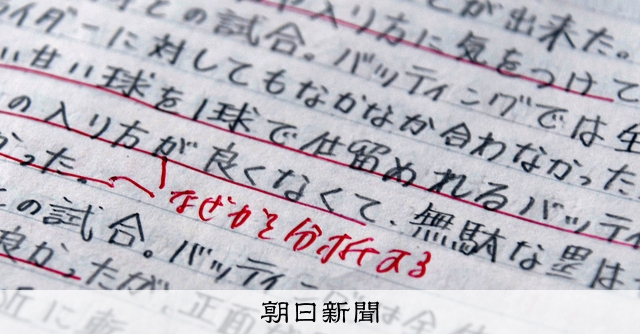 入り方に気をつけて
が出来た。
イダーに対してもなかなか合わなかった
との試合。バッティングでは生
い甘い球を1球で仕留めれるバッティ
の入り方が良くなくて、無駄な塁は
かった。
なぜかを分析する
との試合。バッティ
良かったが、正面
朝日新聞